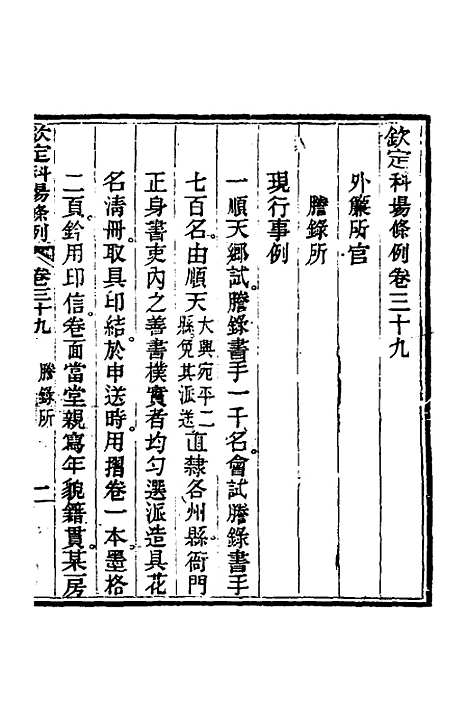 欽定科場條例卷三十九
外簾所官
謄錄所
現行事例
一順天鄉試謄錄書手一千名會試謄錄書手
七百名由順天大興宛平二縣免其派送直隸各州縣衙門
正身書吏內之善書樸實者均勻選派造具花
名清冊取具印結於申送時用摺卷一本墨格
二頁鈐用印信卷面當堂親寫年貌籍貫某房
欽定科場條例 卷三十九 謄錄所 一